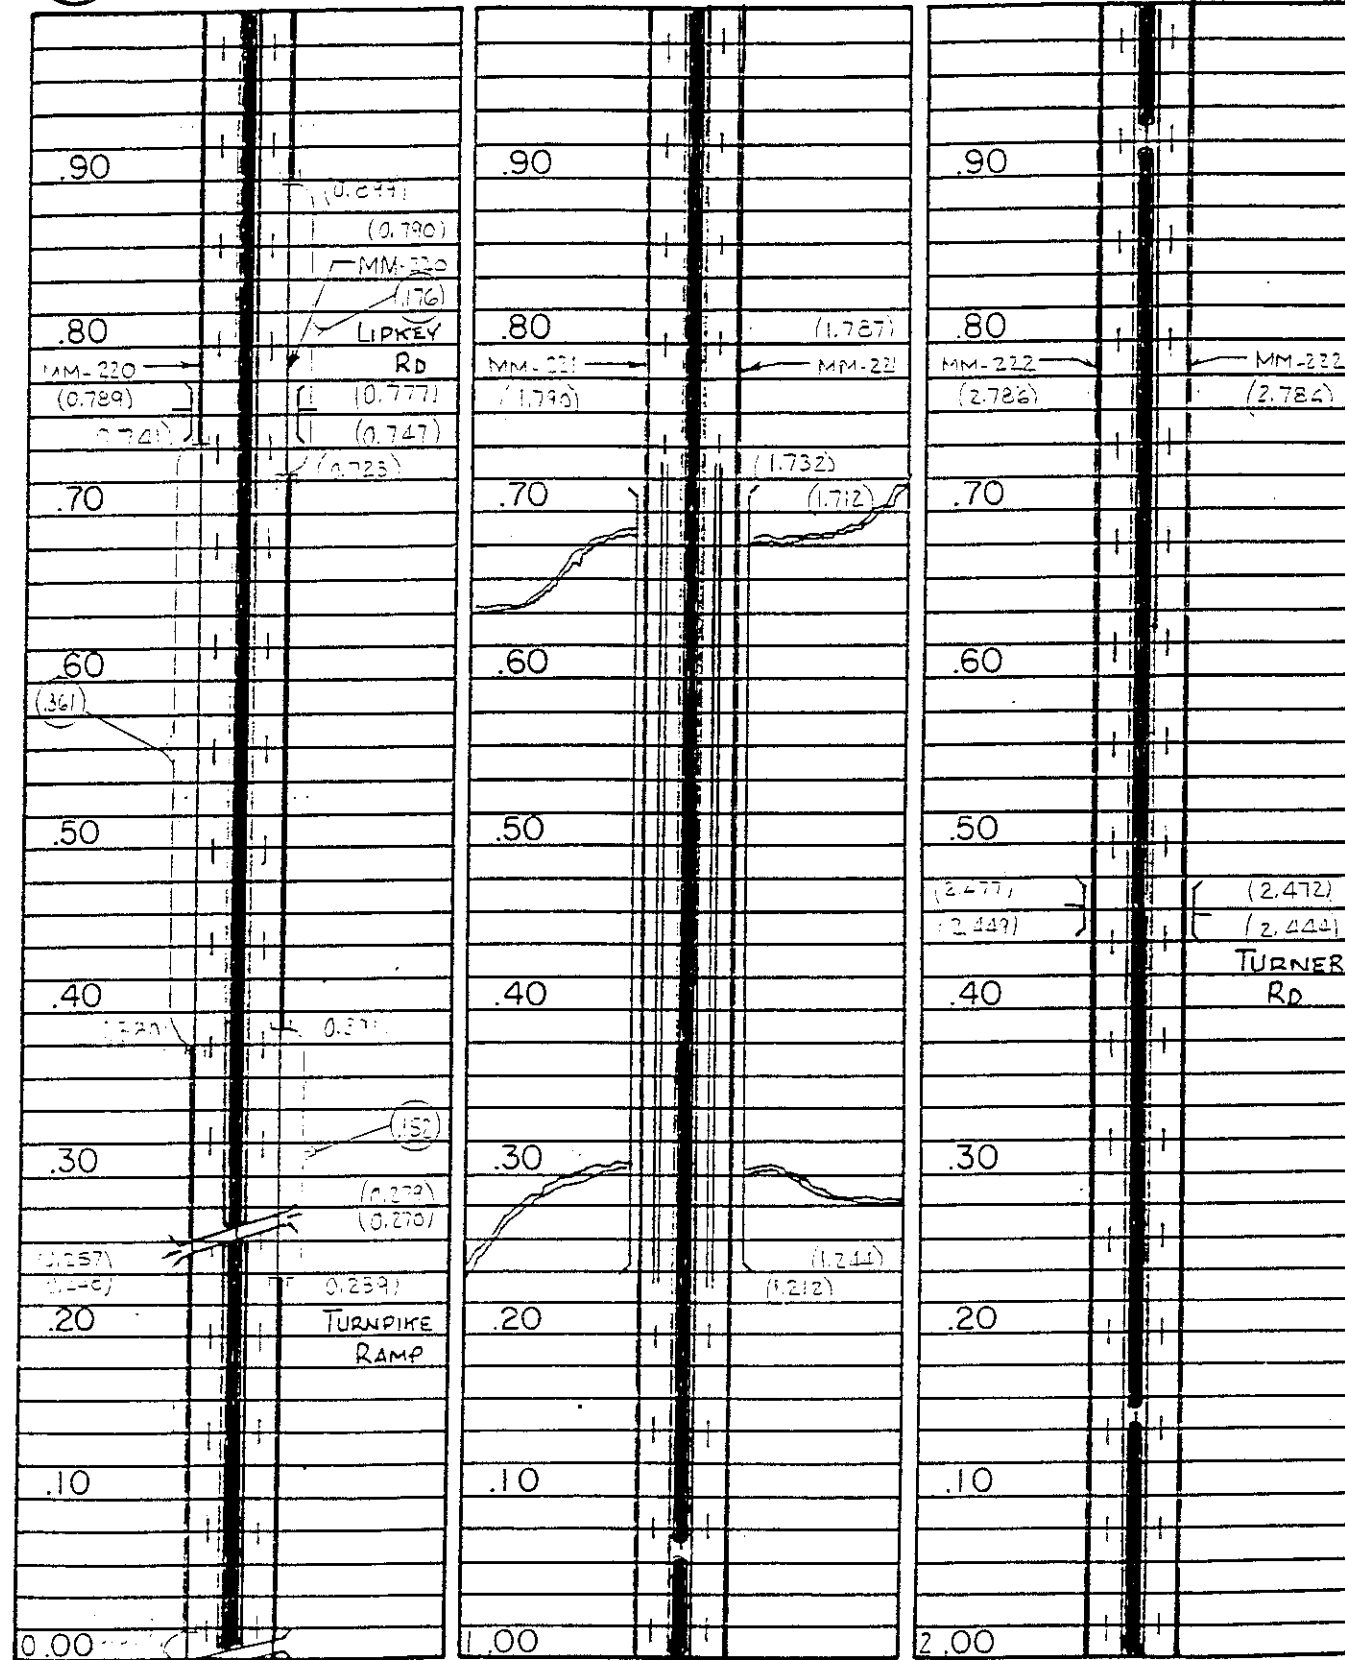 .90
(0.899)
(0.790)
MM-220
(.176)
.80
LIPKEY
RD
MM-220
(0.789)
(0.777)
0.741)
(0.747)
(0.723)
.70
.60
(.361)
.50
.40
.30
(.152)
(0.279)
(0.270)
0.239)
.20
TURNPIKE
RAMP
.10
0.00
.90
.80
(1.787)
MM-221
MM-221
(1.790)
(1.732)
.70
(1.712)
.60
.50
.40
.30
(1.244)
(1.212)
.20
.10
1.00
.90
.80
MM-222
MM-222
(2.786)
(2.786)
.70
.60
.50
(2.477)
(2.472)
(2.449)
(2.444)
TURNER
RD
.40
.30
.20
.10
2.00